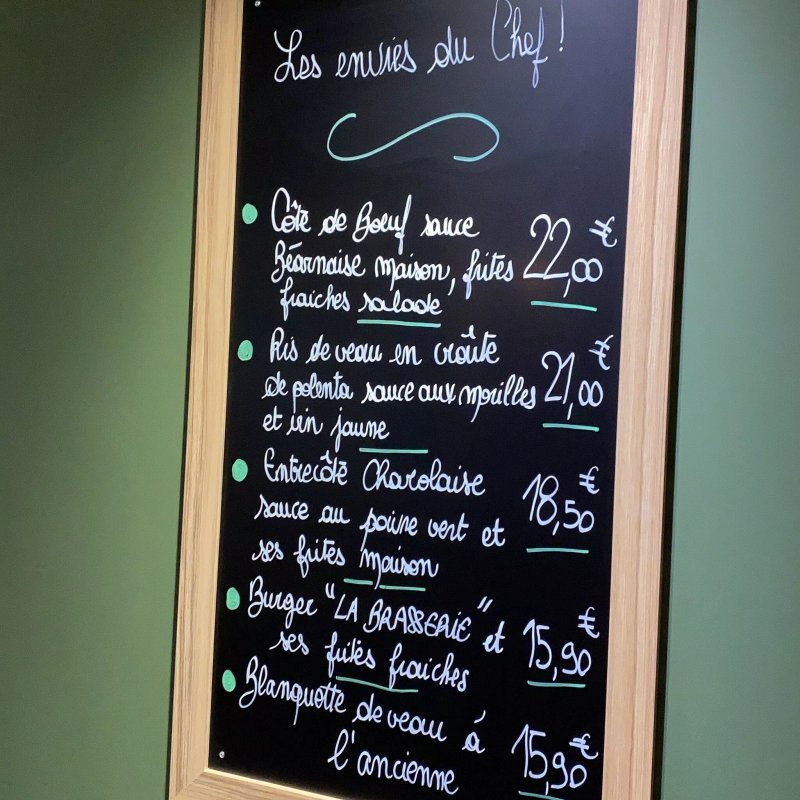 Les envies du Chef!
Côte de Boeuf sauce
Béarnaise maison, frites 22,00 €
fraiches salade
Ris de veau en croûte
de polenta sauce aux morilles 21,00 €
et vin jaune
Entrecôte Charolaise
sauce au poivre vert et 18,50 €
ses frites maison
Burger "LA BRASSERIE" et 15,90 €
ses frites fraiches
Blanquotte de veau à 15,90 €
l'ancienne